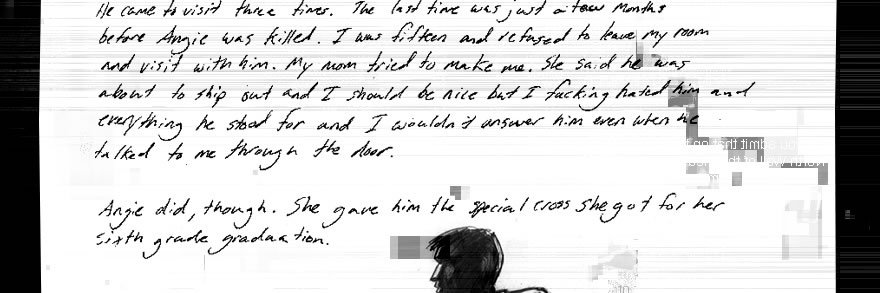 He came to visit three times. The last time was just a few months
before Angie was killed. I was fifteen and refused to leave my room
and visit with him. My mom tried to make me. She said he was
about to ship out and I should be nice but I fucking hated him and
everything he stood for and I wouldn't answer him even when he
talked to me through the door.
Angie did, though. She gave him the special cross she got for her
sixth grade graduation.
you admit that